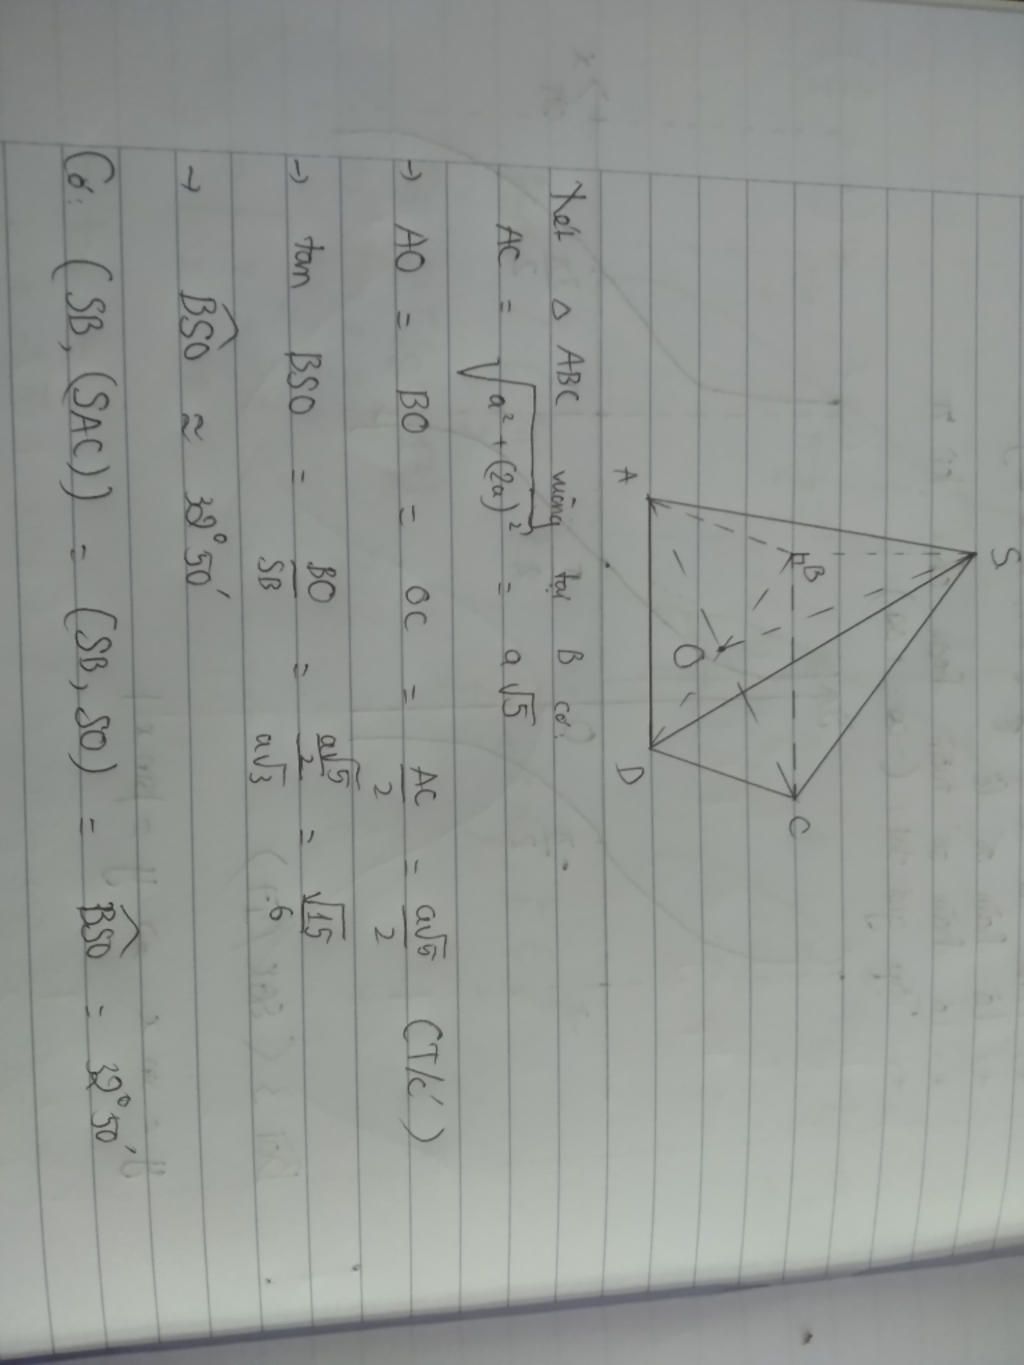 S
B
C
O
A
D
Xét △ ABC vuông tại B có:
AC = √a² + (2a)² = a√5
→ AO = BO = OC = AC/2 = a√5/2 (CT/c')
→ tan BSO = BO/SB = a√5/2/a√3 = √15/6
→ BSO ≈ 32°50'
Có: (SB, (SAC)) = (SB, SO) = BSO = 32°50'